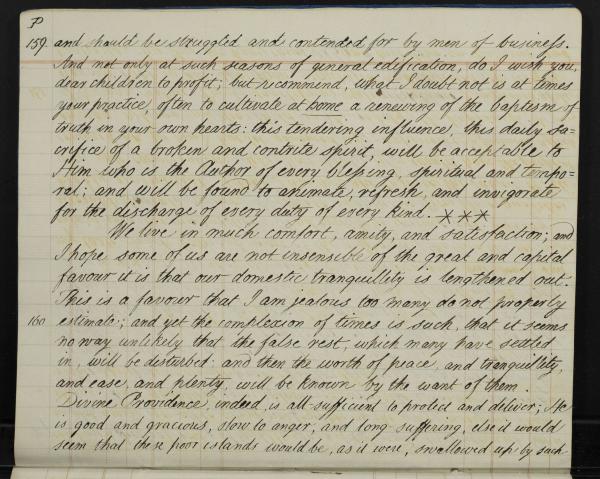 P
159. and should be struggled and contended for by men of business.
And not only at such seasons of general edification, do I wish you,
dear children to profit; but recommend, what I doubt not is at times
your practice, often to cultivate at home a renewing of the baptism of
truth in your own hearts: this tendering influence, this daily sa=
crifice of a broken and contrite spirit, will be acceptable to
Him who is the Author of every blessing, spiritual and tempo=
ral; and will be found to animate, refresh, and invigorate
for the discharge of every duty of every kind. ***
We live in much comfort, amity, and satisfaction; and
I hope some of us are not insensible of the great and capital
favour it is that our domestic tranquillity is lengthened out.
This is a favour that I am jealous too many do not properly
160 estimate; and yet the complexion of times is such, that it seems
no way unlikely that the false rest, which many have settled
in, will be disturbed: and then the worth of peace, and tranquillity,
and ease, and plenty, will be known by the want of them.
Divine Providence, indeed, is all-sufficient to protect and deliver; He
is good and gracious, slow to anger, and long-suffering, else it would
seem that these poor islands would be, as it were, swallowed up by such